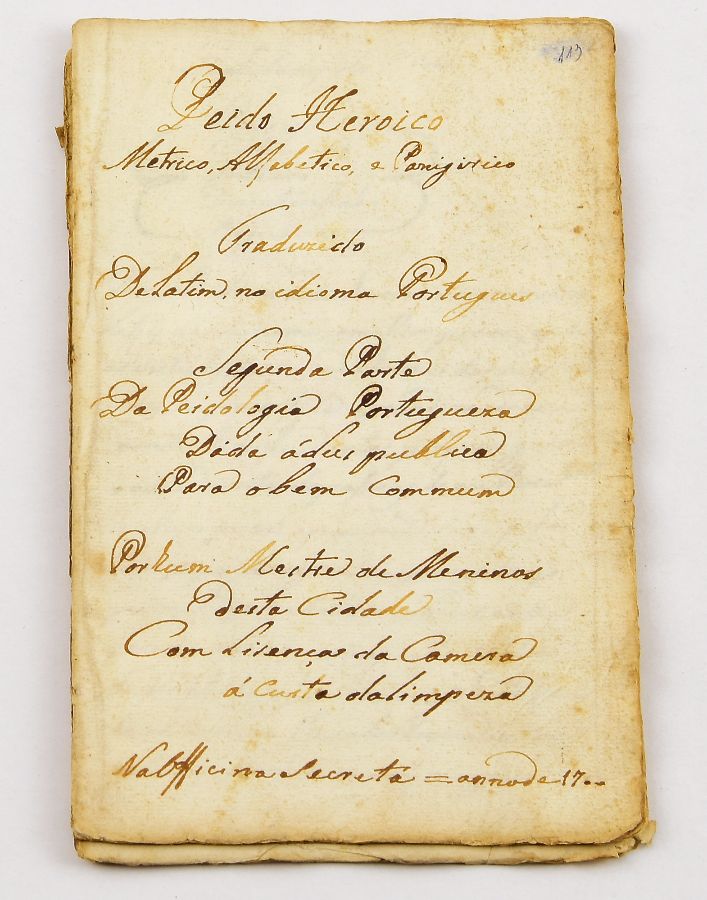 113
Peido Heroico
Metrico, Alfabetico, e Panigirico
Traduzido
De Latim, no idioma Portugues
Segunda Parte
Da Peidologia Portugueza
Dada á lus publica
Para o bem Commum
Por hum Mestre de Meninos
desta Cidade
Com Lisença da Camera
á Custa da limpeza
Na Officina Secreta = anno de 17..